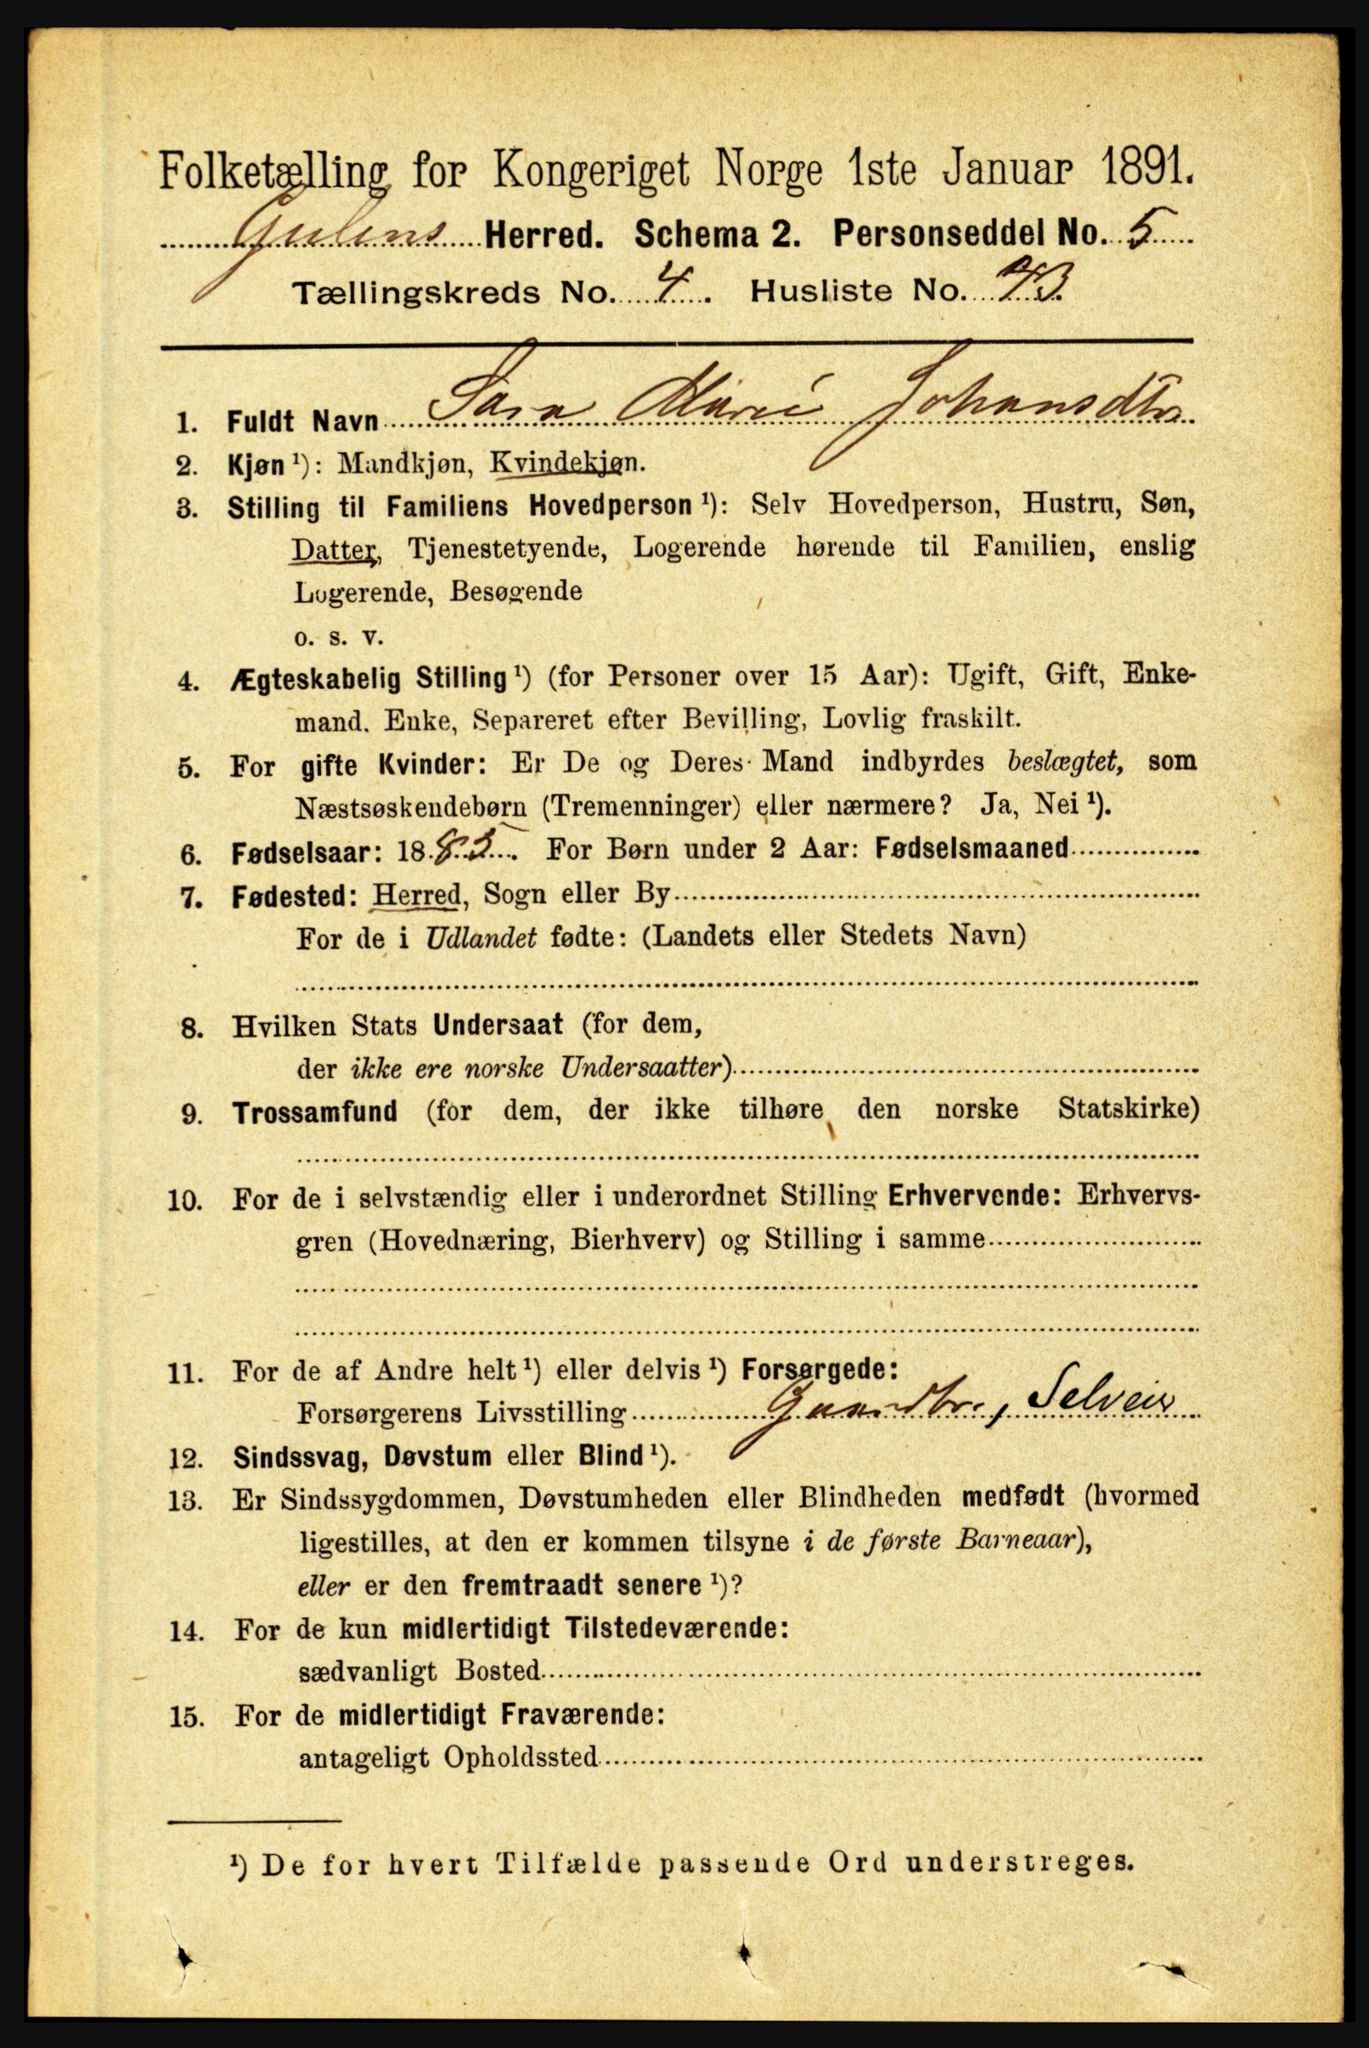 Folketælling for Kongeriget Norge 1ste Januar 1891.
Gulens Herred. Schema 2. Personseddel No. 5
Tællingskreds No. 4. Husliste No. 43.
1. Fuldt Navn Sara Marie Johansdtr
2. Kjøn ¹): Mandkjøn, Kvindekjøn.
3. Stilling til Familiens Hovedperson ¹): Selv Hovedperson, Hustru, Søn,
Datter, Tjenestetyende, Logerende hørende til Familien, enslig
Logerende, Besøgende
o. s. v.
4. Ægteskabelig Stilling ¹) (for Personer over 15 Aar): Ugift, Gift, Enke-
mand. Enke, Separeret efter Bevilling, Lovlig fraskilt.
5. For gifte Kvinder: Er De og Deres Mand indbyrdes beslægtet, som
Næstsøskendebørn (Tremenninger) eller nærmere? Ja, Nei ¹).
6. Fødselsaar: 1885. For Børn under 2 Aar: Fødselsmaaned
7. Fødested: Herred, Sogn eller By
For de i Udlandet fødte: (Landets eller Stedets Navn)
8. Hvilken Stats Undersaat (for dem,
der ikke ere norske Undersaatter)
9. Trossamfund (for dem, der ikke tilhøre den norske Statskirke)
10. For de i selvstændig eller i underordnet Stilling Erhvervende: Erhvervs-
gren (Hovednæring, Bierhverv) og Stilling i samme
11. For de af Andre helt ¹) eller delvis ¹) Forsørgede:
Forsørgerens Livsstilling Gaardbr., Selveier
12. Sindssvag, Døvstum eller Blind ¹).
13. Er Sindssygdommen, Døvstumheden eller Blindheden medfødt (hvormed
ligestilles, at den er kommen tilsyne i de første Barneaar),
eller er den fremtraadt senere ¹)?
14. For de kun midlertidigt Tilstedeværende:
sædvanligt Bosted
15. For de midlertidigt Fraværende:
antageligt Opholdssted
¹) De for hvert Tilfælde passende Ord understreges.